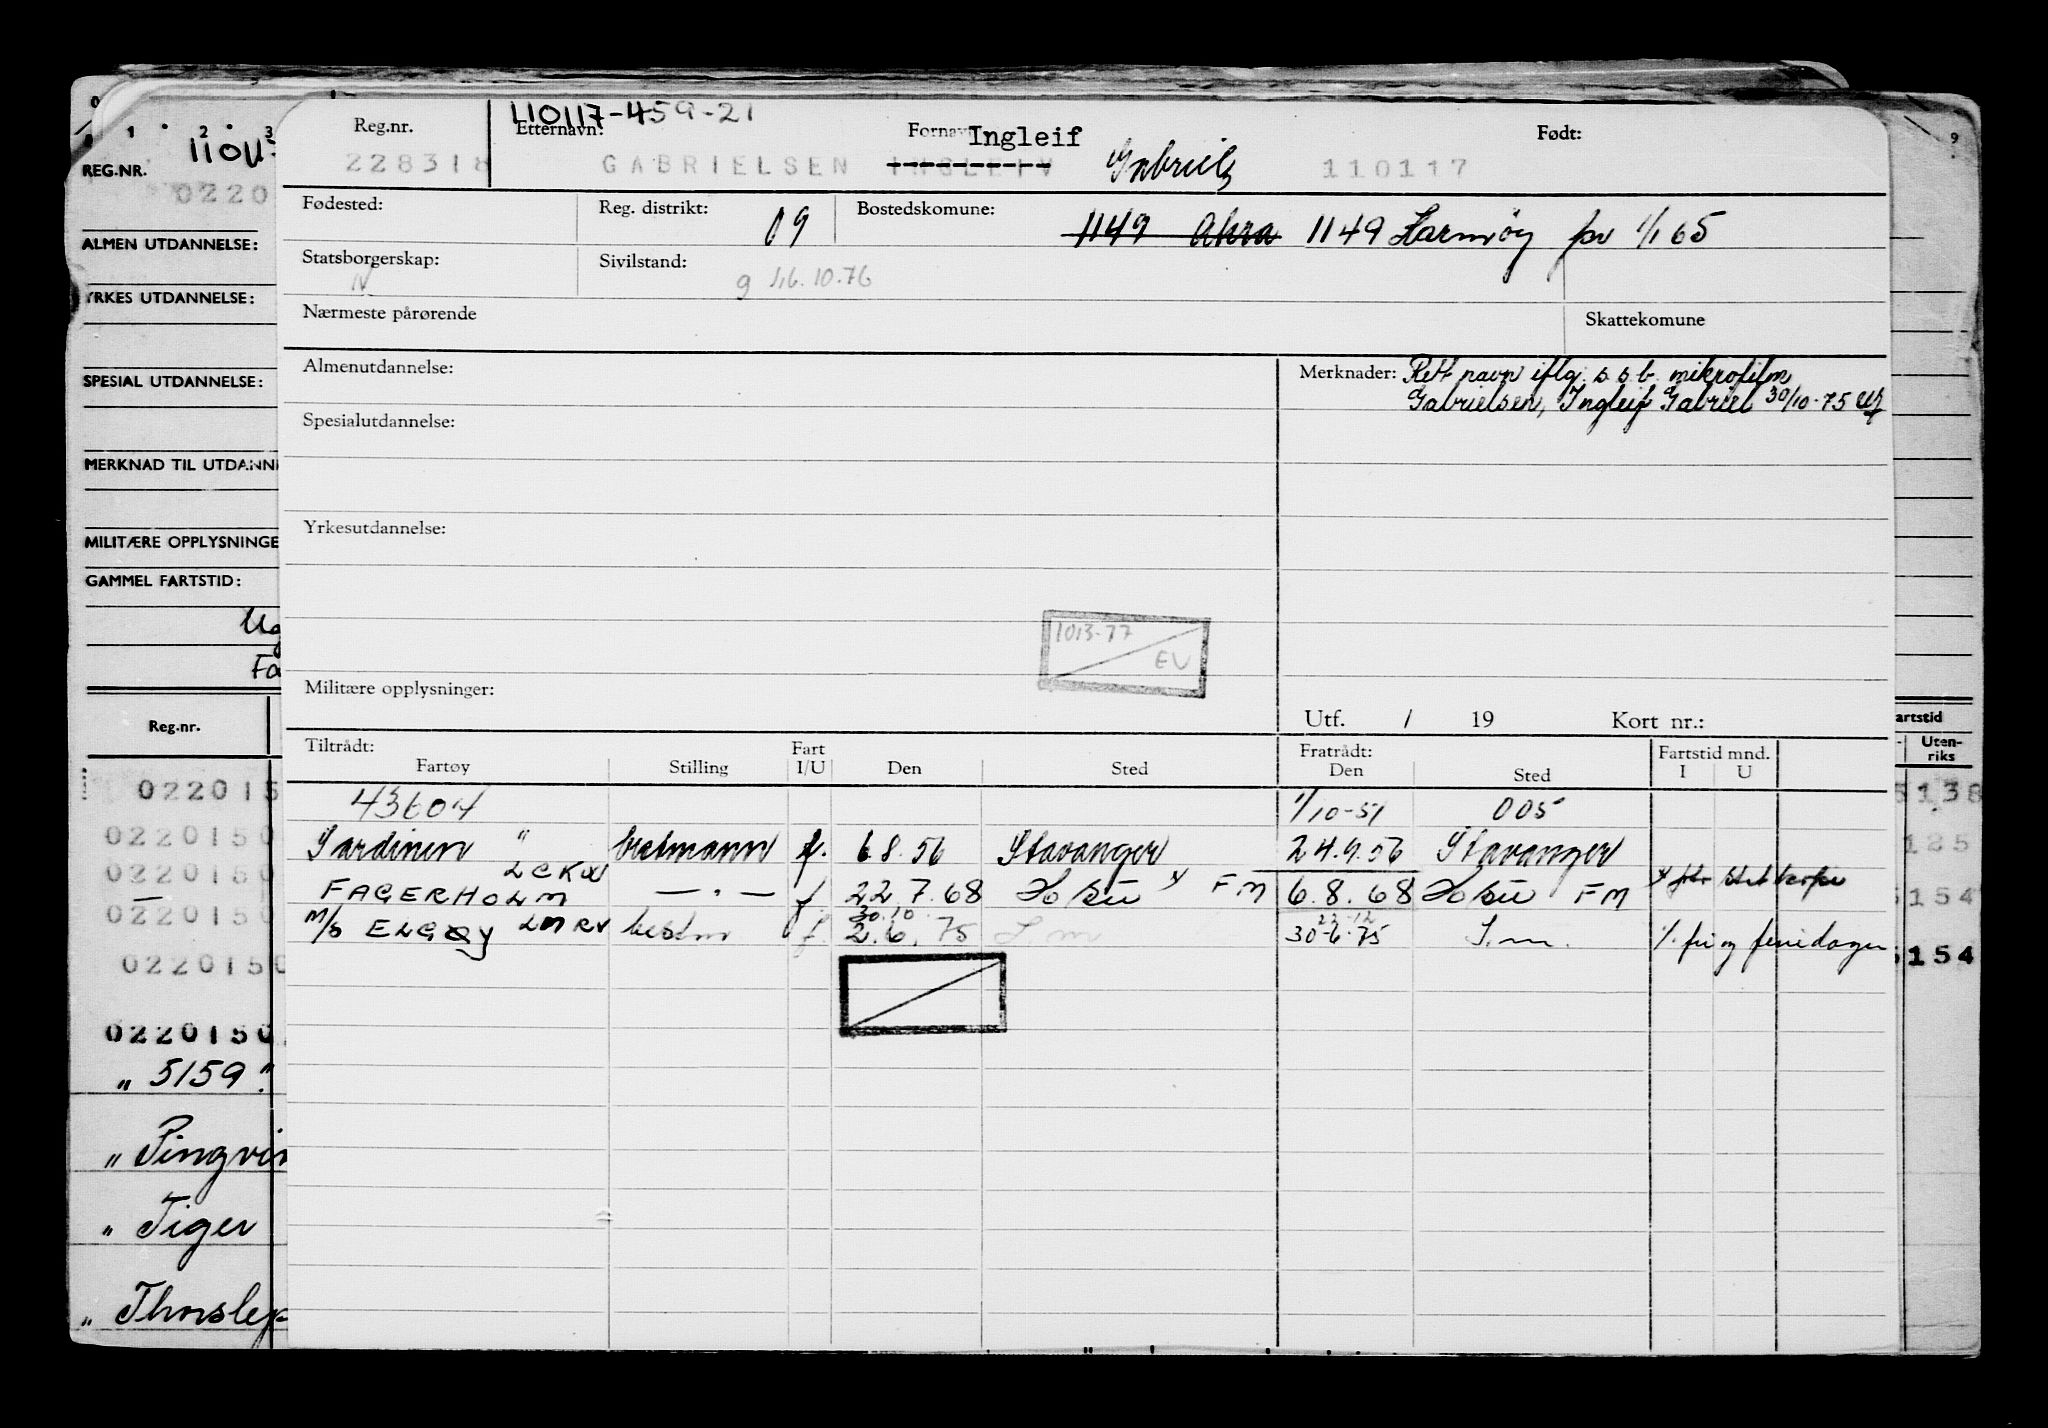 110117-459-21
Reg.nr. Etternavn: Fornavn Ingleif Født:
228318 GABRIELSEN INGLEIV Gabriel 110117
Fødested: Reg. distrikt: 09 Bostedskomune: 1149 Åkra 1149 Karmøy pr 1/1 65
Statsborgerskap: N Sivilstand: g 16.10.76
Nærmeste pårørende Skattekomune
Almenutdannelse: Merknader: Rett navn iflg. s.s.b. mikrofilm
Gabrielsen, Ingleif Gabriel 30/10-75
Spesialutdannelse:
Yrkesutdannelse:
1013-77
EV
Militære opplysninger:
Utf. / 19 Kort nr.:
Tiltrådt: Fart Fratrådt: Fartstid mnd.
Fartøy Stilling I/U Den Sted Den Sted I U
43604 1/10-51 005
Sardinen " bestmann f. 6.8.56 Stavanger 24.9.56 Stavanger
FAGERHOLM LCKW — " — f 22.7.68 FM 6.8.68 FM
30.10 23.12
M/S ELGØY LMRV bestm f. 2.6.75 S.m 30-6-75 S.m. fri og feriedager
0 1 2 3 9
REG.NR. 1101
0220
ALMEN UTDANNELSE:
YRKES UTDANNELSE:
SPESIAL UTDANNELSE:
MERKNAD TIL UTDANN
MILITÆRE OPPLYSNINGE
GAMMEL FARTSTID:
Reg.nr. artstid
Uten-
riks
022015 5138
0220150 125
0220150
0220150 5154
0220150 5154
0220150
" 5159"
" Pingvin
" Tiger